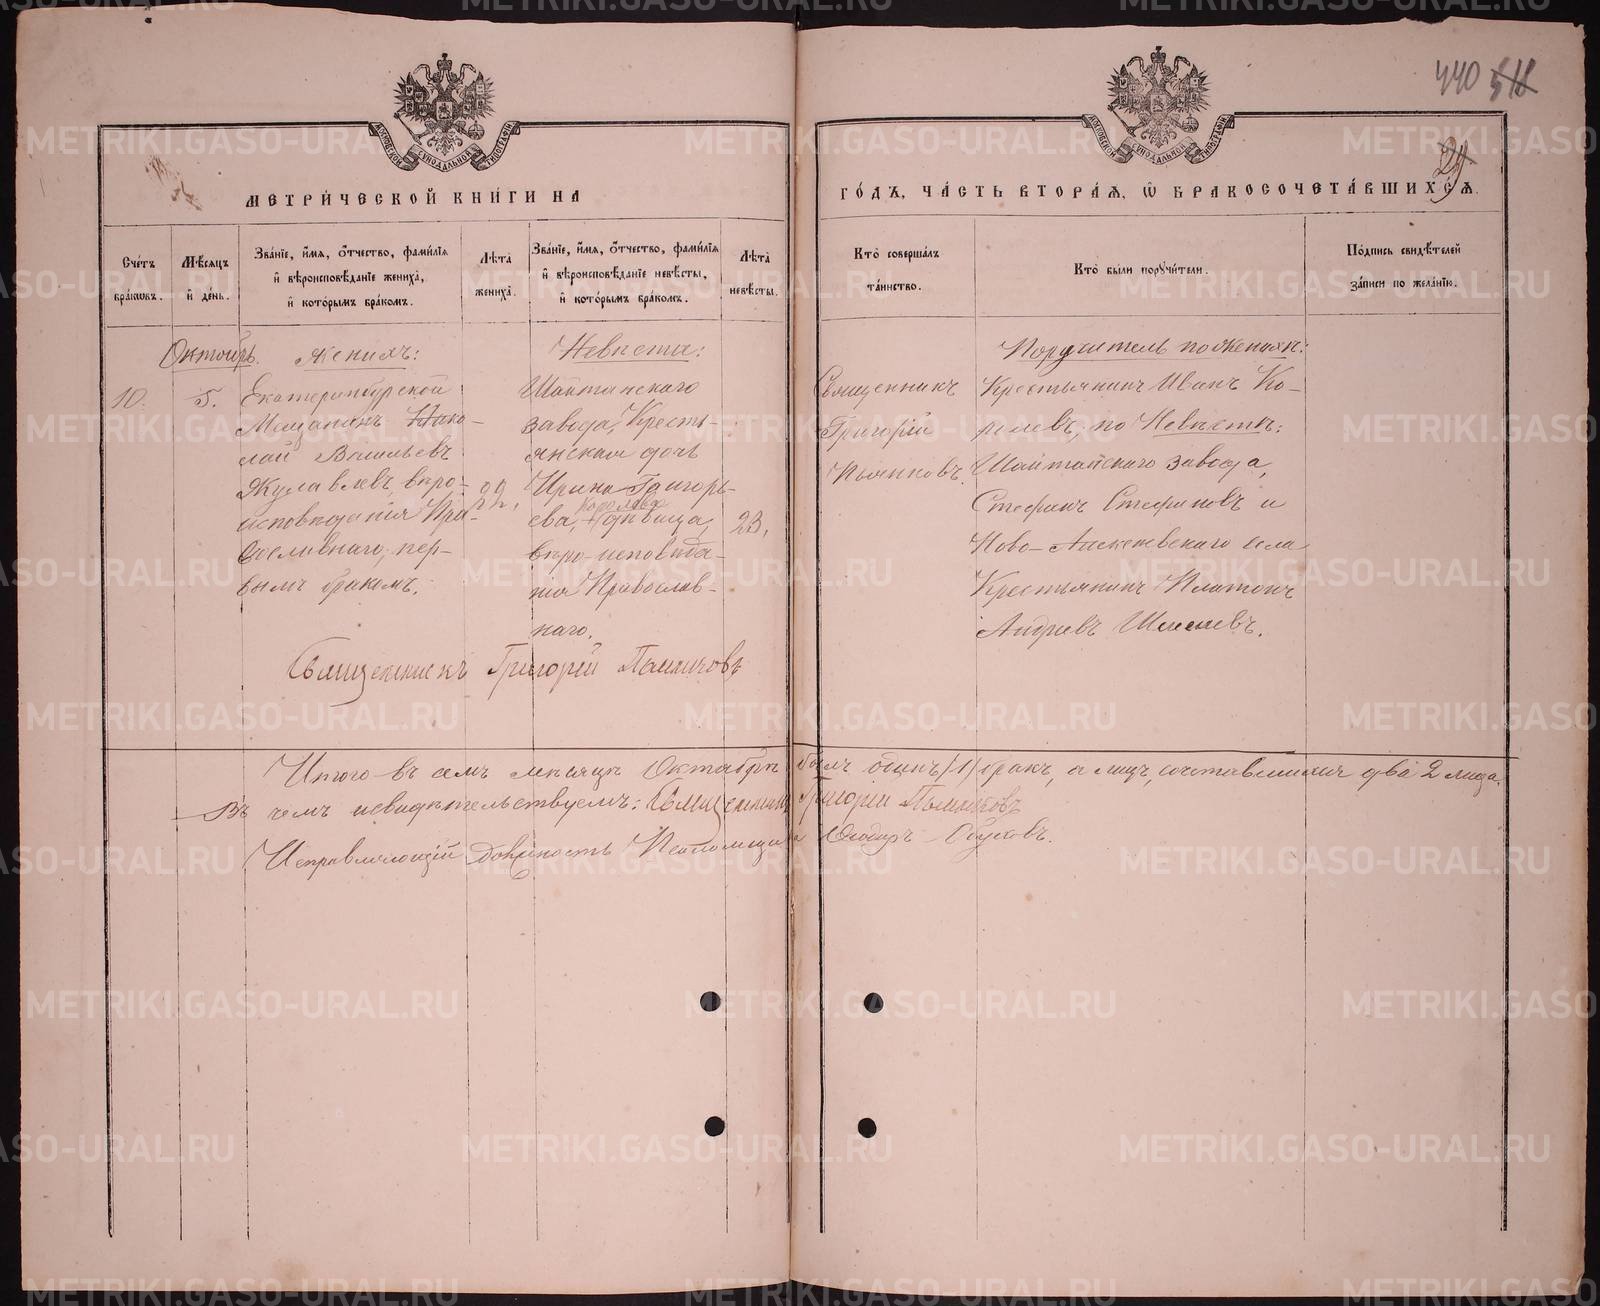 440 518
29
МОСКОВСКОЙ СѴНОДАЛЬНОЙ ТИПОГРАФІИ
МОСКОВСКОЙ СѴНОДАЛЬНОЙ ТИПОГРАФІИ
МЕТРИ́ЧЕСКОЙ КНИ́ГИ НА
ГО́ДЪ, ЧА́СТЬ ВТОРА́Ѧ, Ѽ БРАКОСОЧЕТА́ВШИХСѦ.
Сче́тъ бра́ковъ.
Мѣ́сѧцъ и҆ де́нь.
Зва́нїе, и҆́мѧ, ѻ҆́тчество, фами́лїѧ
и҆ вѣроисповѣ́данїе жениха̀,
и҆ кото́рымъ бра́комъ.
Лѣ́та жениха̀.
Зва́нїе, и҆́мѧ, ѻ҆́тчество, фами́лїѧ
и҆ вѣроисповѣ́данїе невѣ́сты,
и҆ кото́рымъ бра́комъ.
Лѣ́та невѣ́сты.
Кто̀ соверша́лъ
та́инство.
Кто̀ бы́ли порꙋчи́тели.
По́дпись свидѣ́телей
за́писи по жела́нїю.
Октябрь. Женихъ:
10. 5. Екатеринбургской
Мѣщанинъ Нико-
лай Васильевъ
Журавлевъ, вѣро-
исповѣданія Пра-
вославнаго, пер-
вымъ бракомъ.
22,
Невѣста:
Шайтанскаго
завода, Кресть-
янская дочь
Ирина Григорь-
ева, Королева
дѣвица,
вѣро-исповѣда-
нія Православ-
наго.
23,
Священникъ
Григорій
Пьянковъ.
Поручитель по Женихѣ:
Крестьянинъ Иванъ Ко-
ролевъ; по Невѣстѣ:
Шайтанскаго завода,
Стефанъ Стефановъ и
Ново-Алексѣевскаго села
Крестьянинъ Платонъ
Андреевъ Шмелевъ.
Священникъ Григорій Пьянковъ
Итого въ семъ мѣсяцѣ Октябрѣ былъ одинъ /1/ бракъ, а лицъ, сочетавшихся два 2 лица.
Въ чемъ и свидѣтельствуемъ: Священникъ Григорій Пьянковъ
Исправляющій должность Псаломщика
METRIKI.GASO-URAL.RU